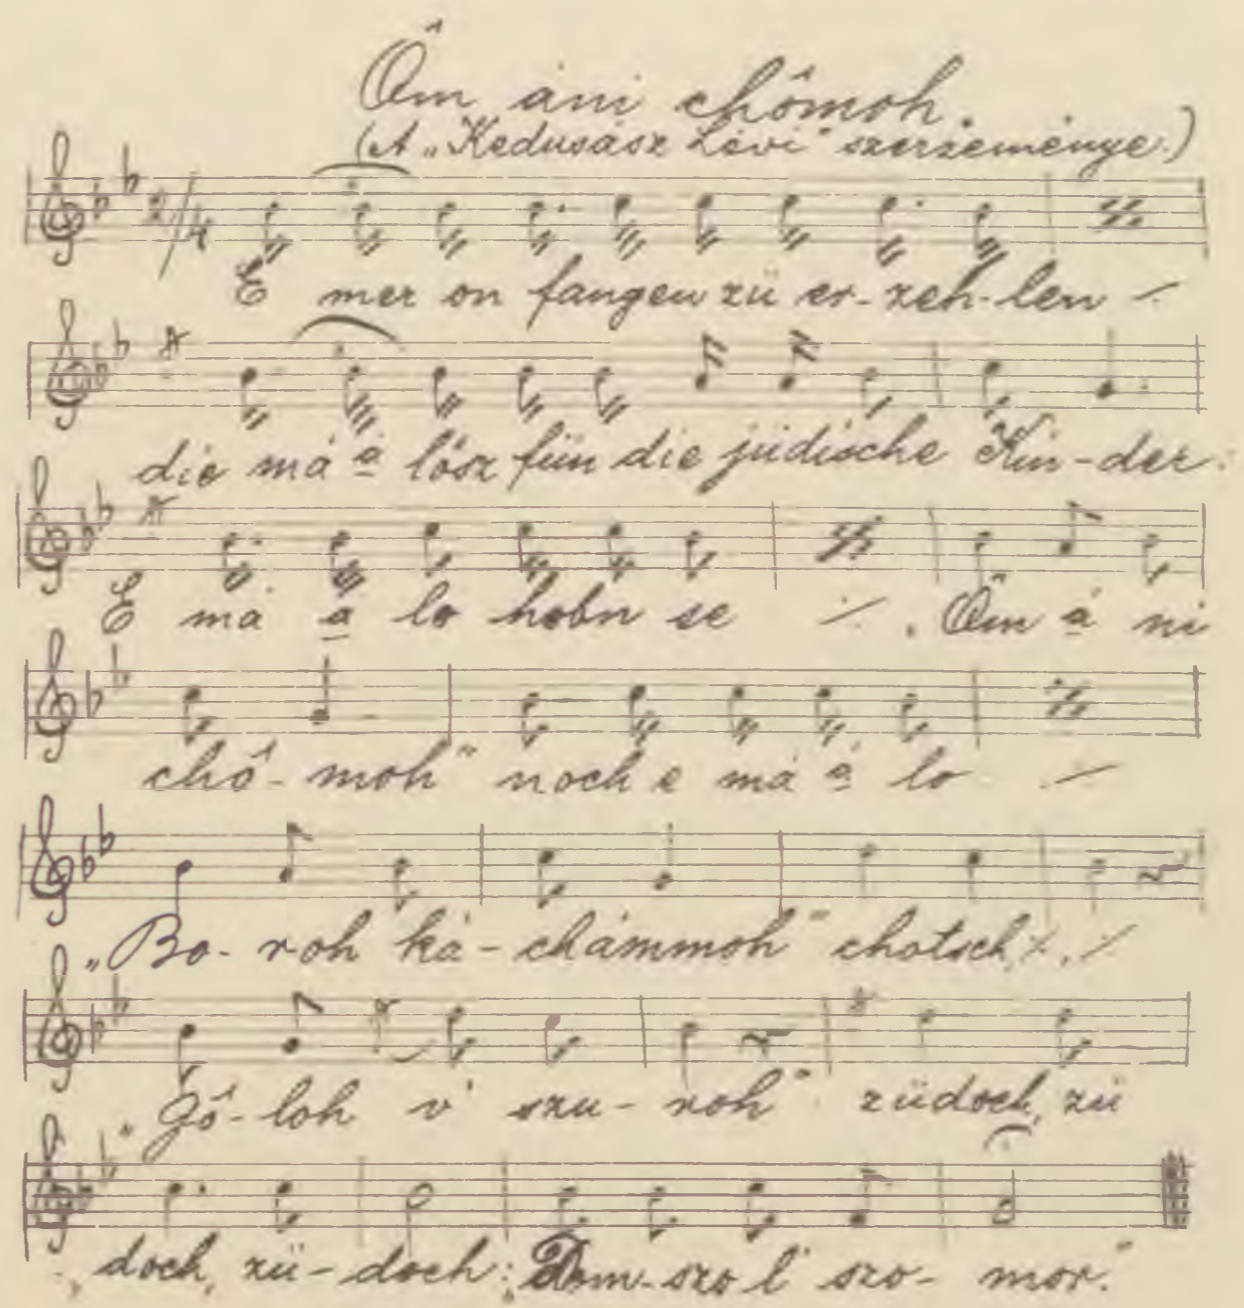 Ôm áni chômoh.
(A „Kedusász Lévi" szerzeménye.)
2/4
E mer on fangen zü er-zeh-len ⁒
die má á lósz fün die jüdische Kin-der.
E má á lo hobn se ⁒. Ôm á ni
chô-moh" noch e má á lo ⁒
„Bo-roh ká-chámmoh" chotsch ⁒. ⁒
„Gô-loh v' szu-roh" züdoch, zü
doch, zü-doch: „Dom-szo l' szo-mor."